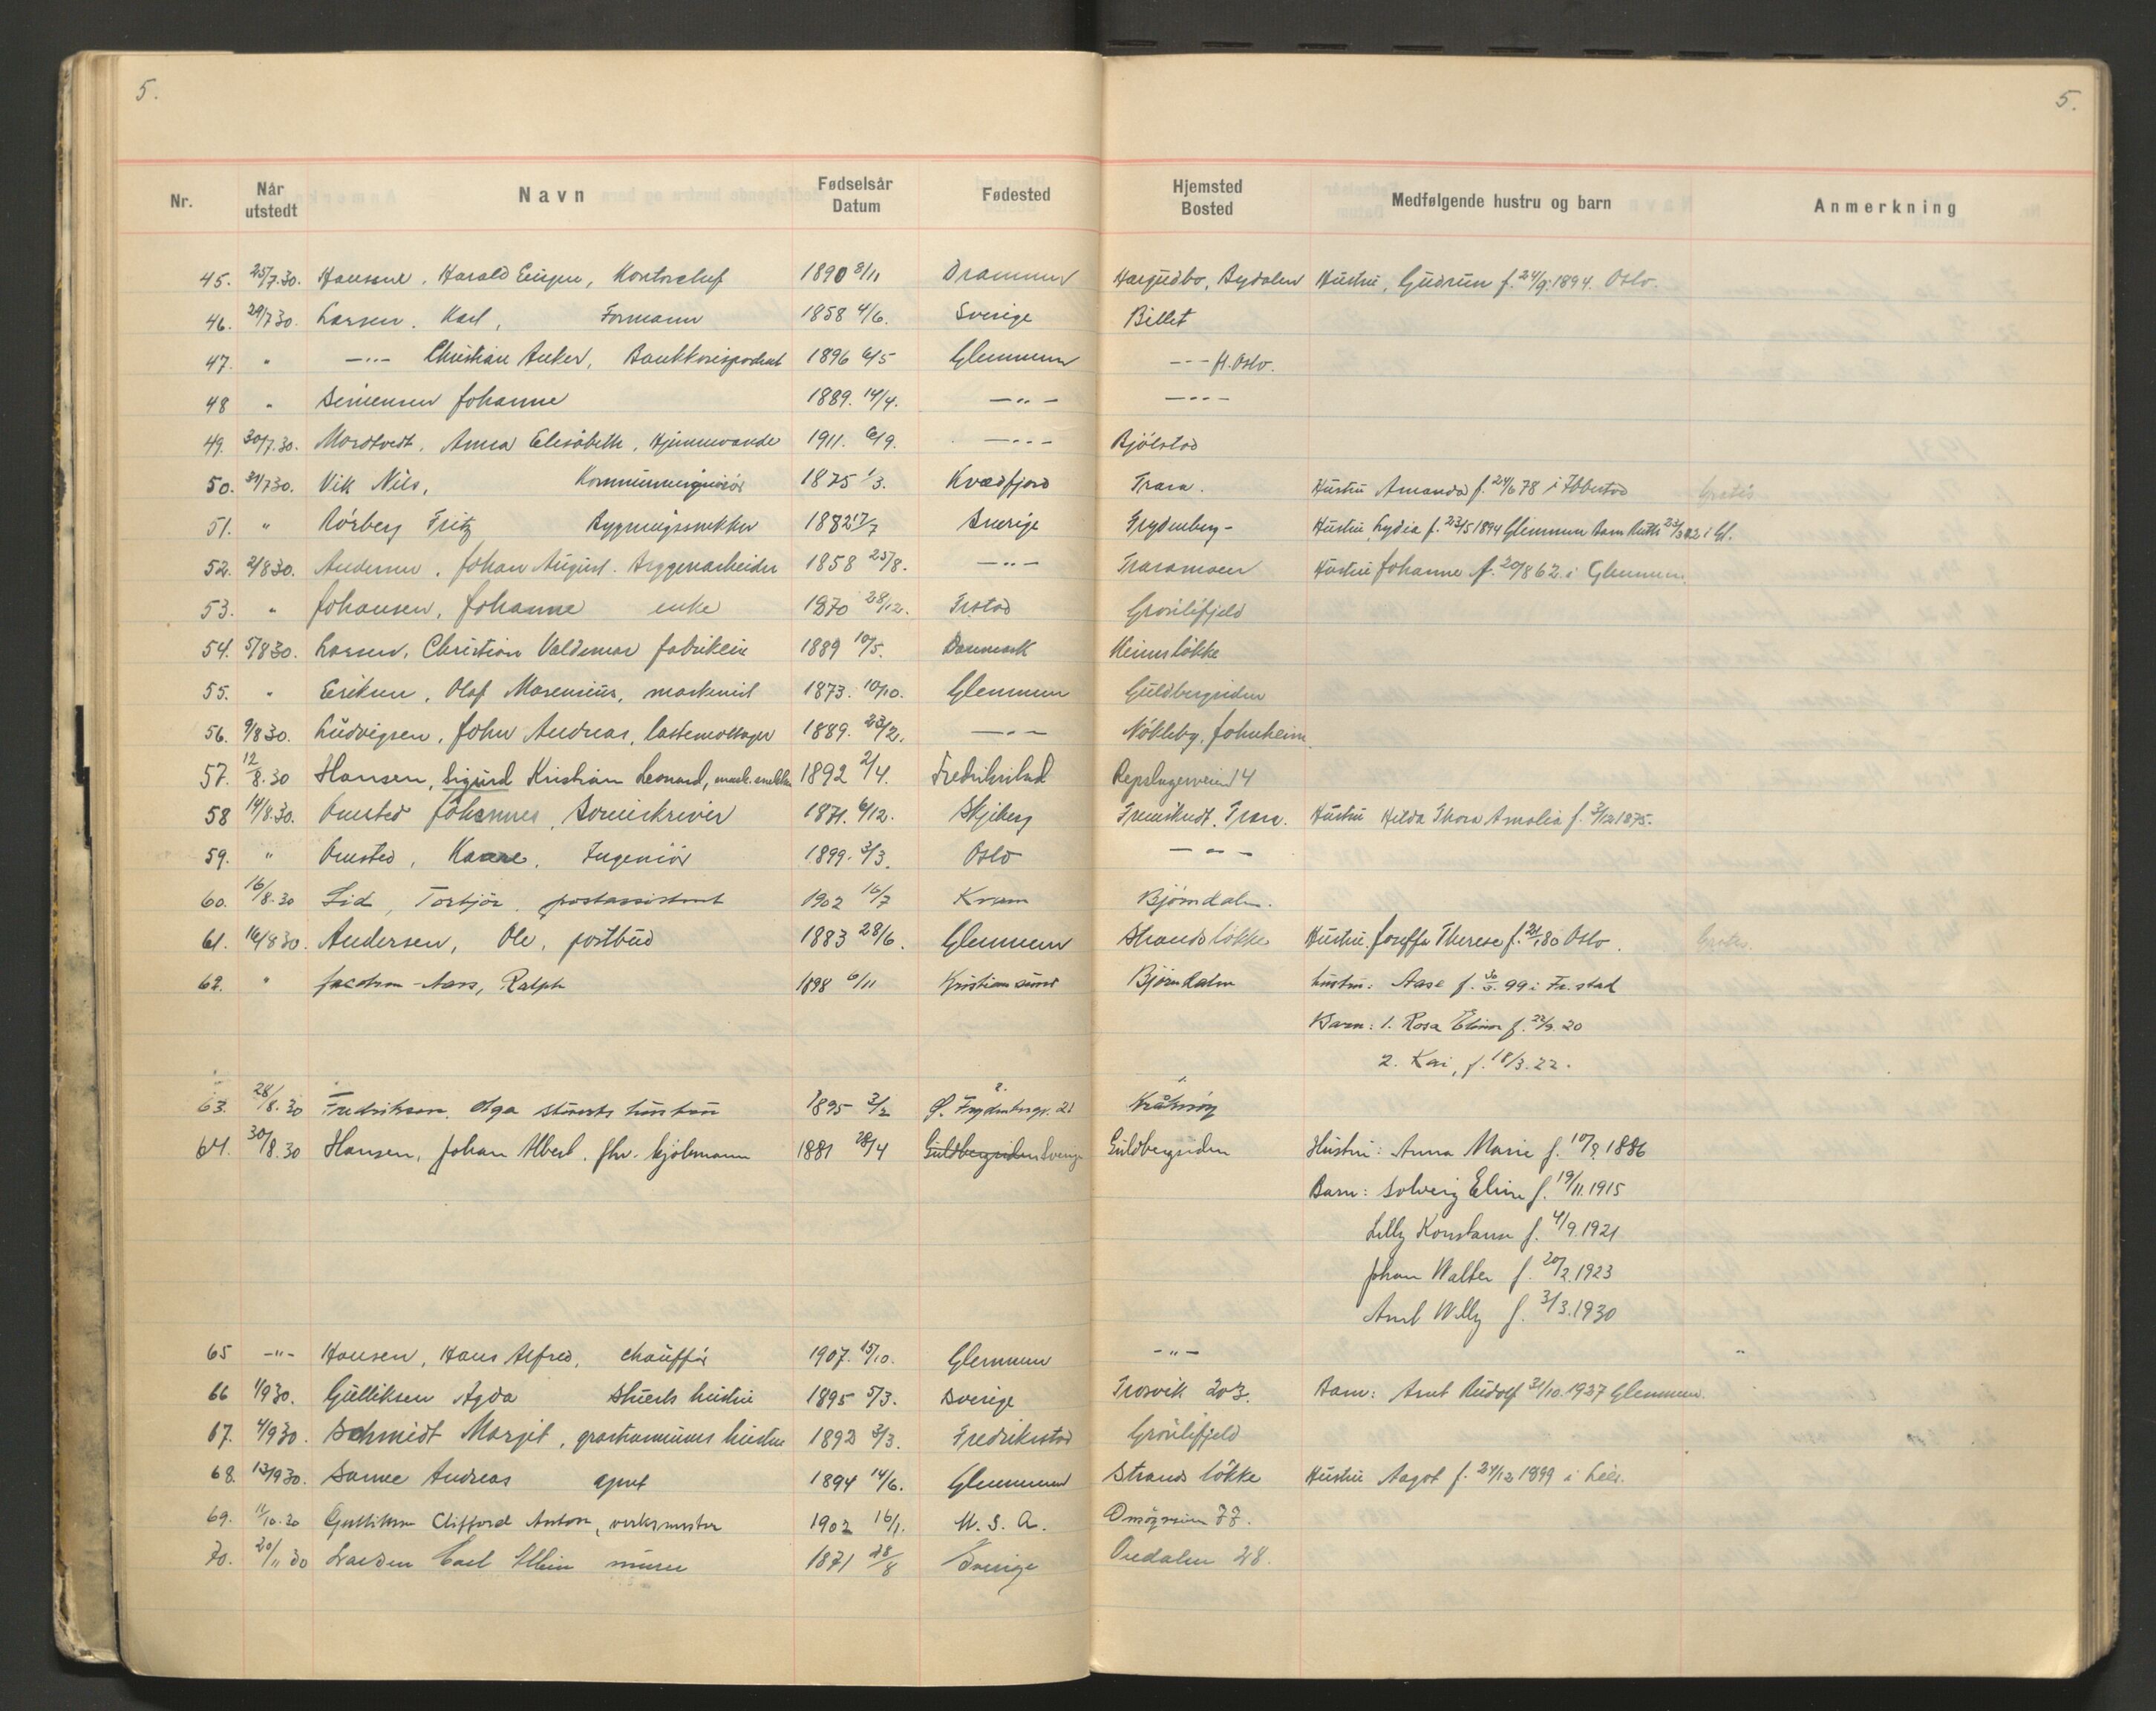 5.
5.
Nr. Når utstedt Navn Fødselsår Datum Fødested Hjemsted Bosted Medfølgende hustru og barn Anmerkning
45. 25/7.30. Harald Eugen, Kontorchef 1890 8/11 Drammen Hustru, Gudrun f. 24/9.1894. Oslo.
46. 29/7 30. Larsen. Karl, Formann 1858 4/6. Sverige Billet
47. " —"— Christian Anker, 1896 6/5 Glemmen --- Oslo.
48 " Johanne 1889. 14/4. —"— —"—
49. 30/7.30. Anna Elisabeth, Hjemmeværende 1911. 6/9. —"— Bjölstad
50. 31/7 30. Vik Nils, Kommuneingeniör 1875 1/3. Kvædfjord Trara. Hustru Amanda f. 24/6 78 i Ibbestad Gratis
51. " Rörberg Fritz Bygningssnekker 1882 17/7 Sverige Frydenberg- Hustru, Lydia f. 23/5 1894 Glemmen Barn Ruth i Gl.
52. 2/8 30. Andersen, Johan August. Bryggeriarbeider 1858 25/8. —"— Traramoen Hustru Johanne f. 20/8 62 i Glemmen.
53. " Johansen, Johanne enke 1870 28/12. Frstad Grönlifjeld
54. 5/8 30. Larsen, Christian Valdemar fabrikeier 1889 10/5. Danmark
55. " Eriksen, Olaf Marensius, maskinist 1873. 10/10. Glemmen Guldbergsiden
56. 9/8 30. Ludvigsen, John Andreas, lastemottager 1889. 23/2. —"— Nökleby, Johnheim.
57. 12/8.30 Hansen, Sigurd Kristian Leonard, 1892 2/4. Fredrikstad Repslagerveien 14
58 14/8.30. Omsted Johannes, Sorenskriver 1871. 6/12. Skjeberg Trara. Hustru Hilda Thora Amalia f. 3/12 1875.
59. " Omsted, Kaare, Ingeniör 1899. 3/3. Oslo —"—
60. 16/8.30 Lid, Torbjör. postassistent 1902 16/7 Kvam Björndalen.
61. 16/8 30. Andersen, Ole, postbud 1883 28/6. Glemmen Strandslökke Hustru. Joseffa Therese Oslo. Gratis.
62. " Jacobsen-Aars, Ralph 1898 6/11 Kristiansund Björndalen hustru: Aase 99 i Fr.stad
Barn: 1. Rosa Elinor f. 22/9.20
2. Kai, f. 18/3.22.
63. 28/8.30 Fredriksen. Olga stuerts hustru 1895 3/2 Kråkeröy
64. 30/8.30 Hansen, Johan Albert. fhv. sjömann 1881 28/4 Guldbergsiden Sverige Guldbergsiden Hustru: Anna Marie 1886
Barn: Solveig Elin f. 19/11.1915
Lilly Konstanse f. 4/9.1921
Johan Walter f. 20/2.1923
Arnt Willy f. 3/3.1930
65 -"- Hansen, Hans Alfred, chaufför 1907. 15/10. Glemmen -"-
66 1/9 30. Gulliksen Agda Stuerts hustru 1895 5/3. Sverige Trosvik 203. Barn: Arnt Rudolf 31/10.1927 Glemmen.
67. 4/9 30. Schmidt Margit, hustru 1892 3/3. Fredrikstad Grönlifjeld
68. 13/9 30. Sanne Andreas agent 1894 14/6. Glemmen Strands lökke Hustru Aagot f. 24/12 1899 i Lier.
69. 11/10.30 Gulliksen Clifford Anton, verksmester 1902 16/1. U.S.A. 77.
70. 20/11 30 Larsen Carl Albin murer 1871 28/8 Sverige Oredalen 28.